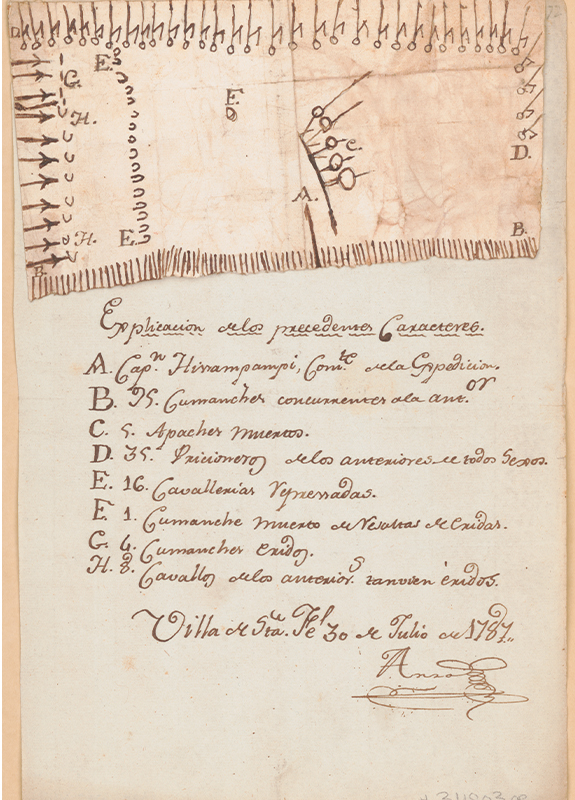 D.
E.
G.
H.
E.
C.
D.
A.
H.
E.
B.
B.
Explicacion de los precedentes Caracteres.
A. Capn. Hisampampi, Comte. de la Expedicion.
B. 95. Cumanches concurrentes a la antor.
C. 5. Apaches muertos.
D. 35. Pricioneros de los anteriores de todos Sexos.
E. 16. Cavallerias represadas.
F. 1. Cumanche muerto de resultas de eridas.
G. 4. Cumanches eridos.
H. 8. Cavallos de los anteriors. tanvien éridos.
Villa de Sta. Fe 30 de Julio de 1787.
Anza